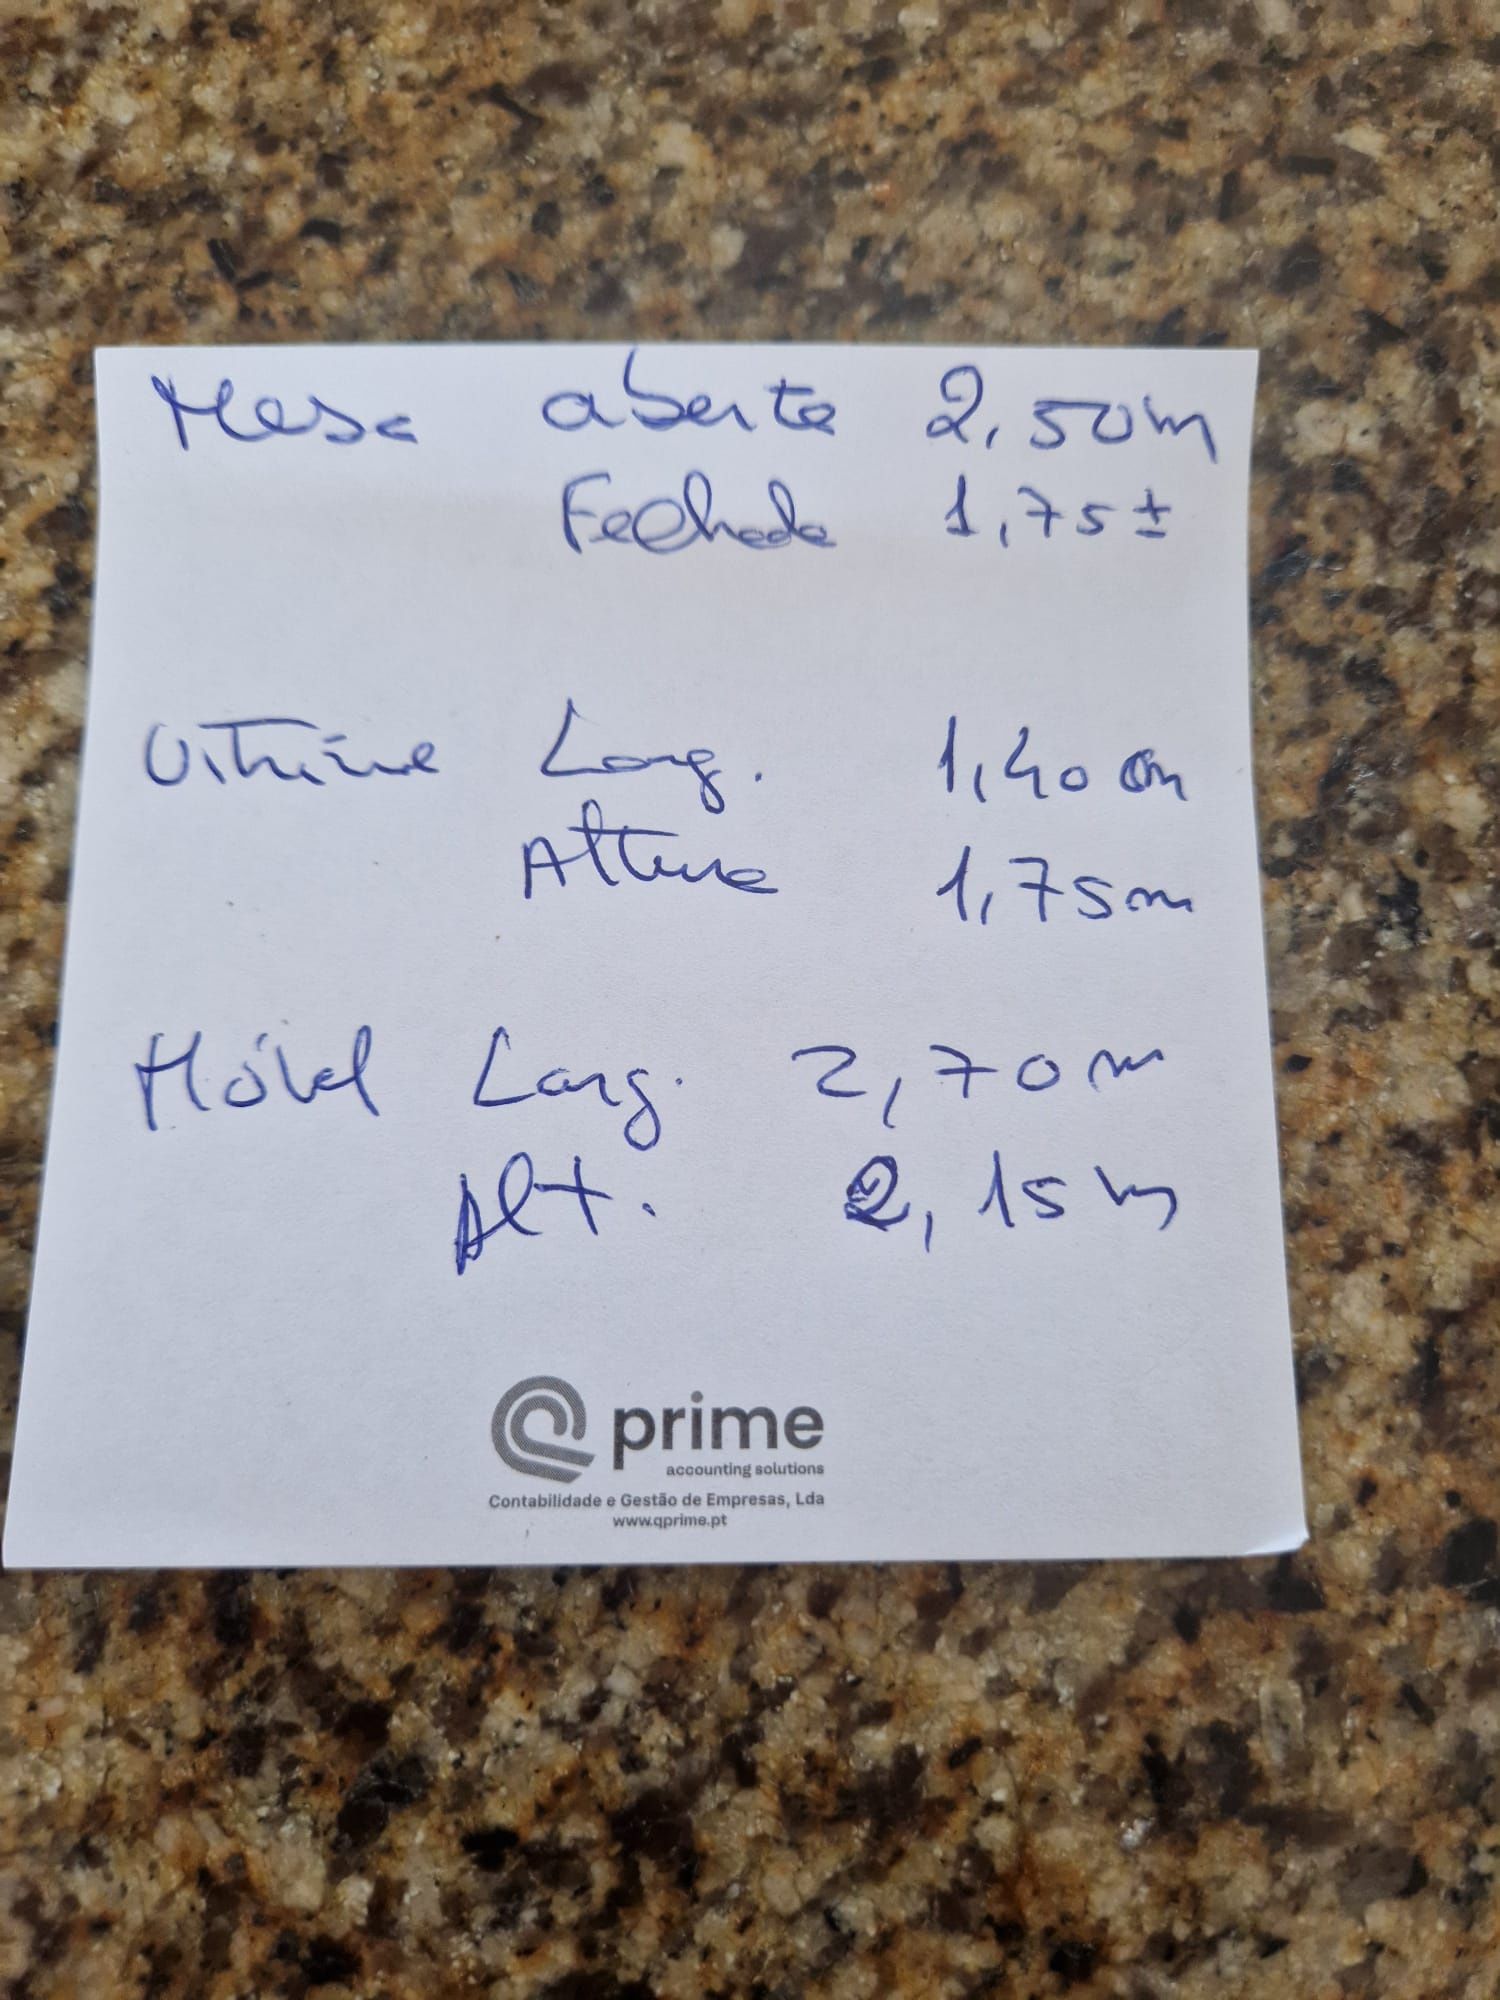 Mesa aberta 2,50m
Fechada 1,75 ±
Vitrine Larg. 1,40 cm
Altura 1,75m
Móvel Larg. 2,70 m
Alt. 2,15 m
prime
accounting solutions
Contabilidade e Gestão de Empresas, Lda
www.qprime.pt